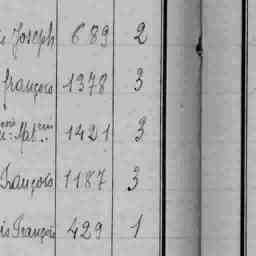 Joseph 689 2
François 1378 3
1421 3
François 1187 3
François 429 1